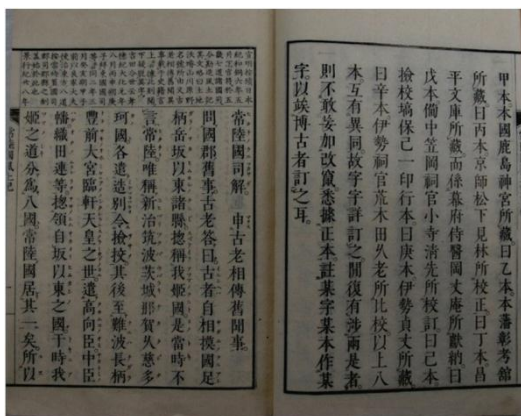 甲本本國鹿島神宮所藏曰乙本本藩彰考館
所藏曰丙本京師松下見林所校正曰丁本昌
平文庫所藏而係幕府侍醫岡丈庵所獻納曰
戊本備中笠岡祠官小寺清先所校訂曰己本
撿校塙保己一印行本曰庚本伊勢貞丈所藏
曰辛本伊勢祠官荒木田久老所比校以上八
本互有異同故字字評訂之閒復有涉兩是者
則不敢妄加改竄悉據正本註某字某本作某
字以竢博古者訂之耳
常陸國司解 申古老相傳舊聞事
問國郡舊事古老答曰古者自相摸國足
柄岳坂以東諸縣摠稱我姬國是當時不
言常陸唯稱新治筑波茨城那賀久慈多
珂國各遣造別令撿挍其後至難波長柄
豐前大宮臨軒天皇之世遣高向臣中臣
幡織田連等摠領自坂以東之國于時我
姬之道分爲八國常陸國居其一矣所以